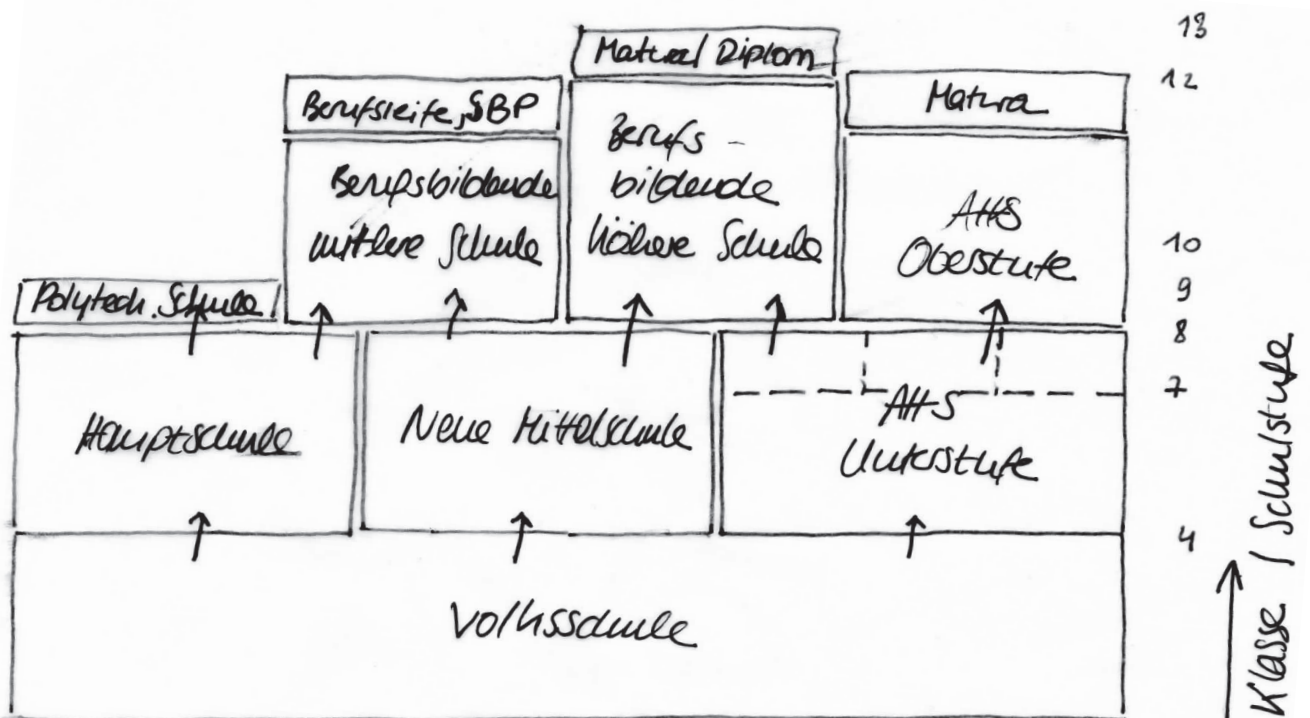 13
Matura/ Diplom
12
Berufsreife, SBP
Matura
Berufs-
bildende
höhere Schule
Berufsbildende
mittlere Schule
AHS
Oberstufe
10
9
Polytech. Schule
8
7
Hauptschule
Neue Mittelschule
AHS
Unterstufe
4
Volksschule
Klasse / Schulstufe